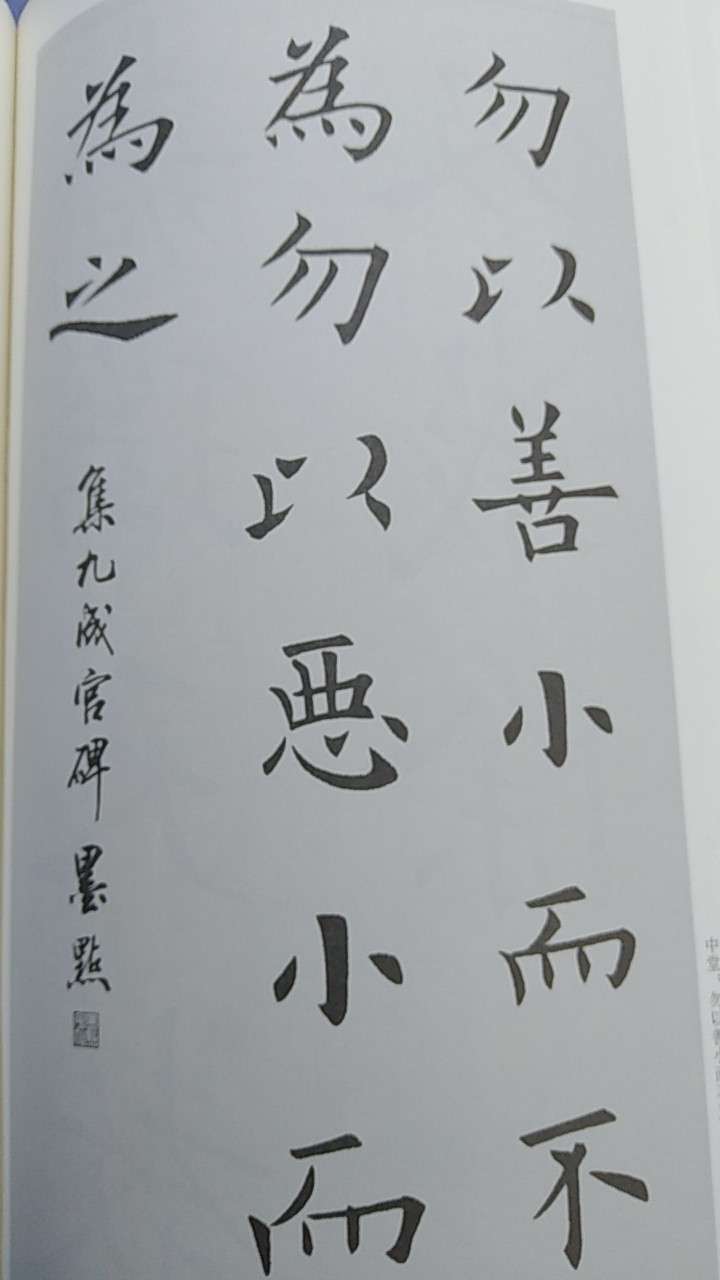 勿以善小而不
為勿以惡小而
為之
集九成宮碑 墨點
中堂